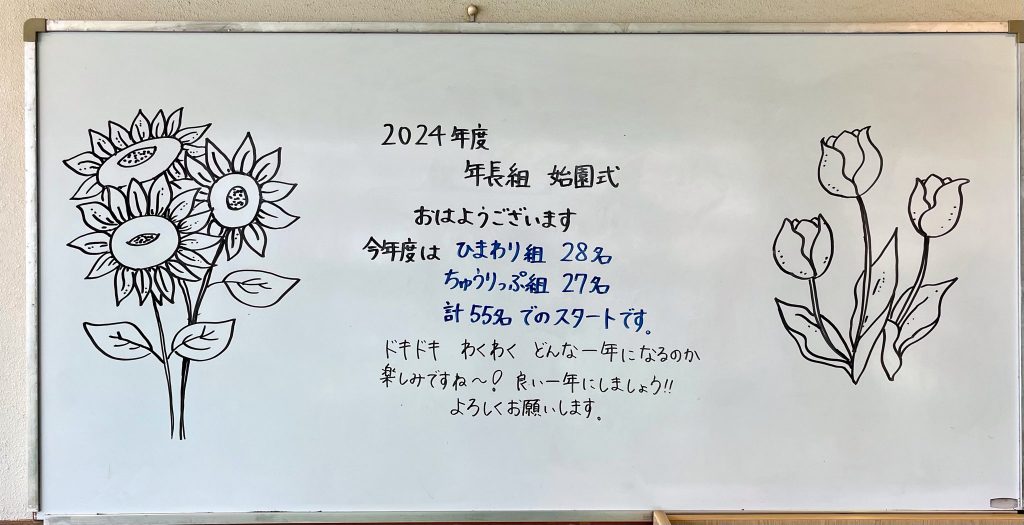 2024年度
年長組 始園式
おはようございます
今年度は ひまわり組 28名
ちゅうりっぷ組 27名
計 55名 でのスタートです。
ドキドキ わくわく どんな一年になるのか
楽しみですね～? 良い一年にしましょう!!
よろしくお願いします。